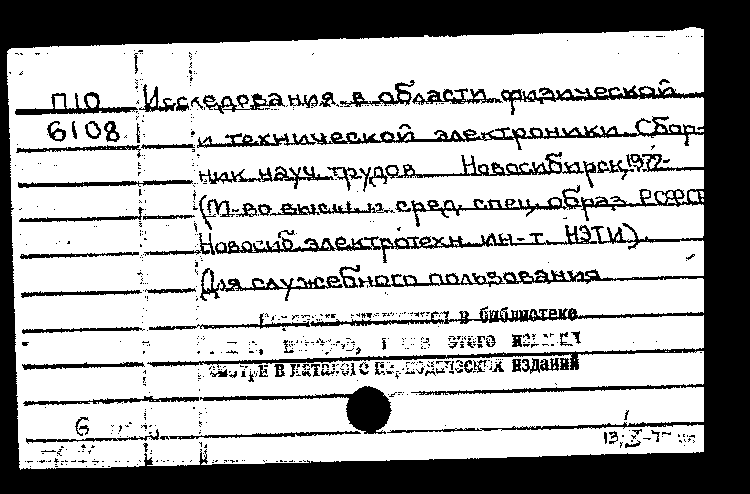 П10 Исследования в области физической
6108 и технической электроники. Сбор-
ник науч. трудов Новосибирск, 1972-
(М-во высш. и сред. спец. образ. РСФСР
Новосиб. электротехн. ин-т. НЭТИ).
Для служебного пользования
в библиотеке
этого
смотри в каталоге периодических изданий
6